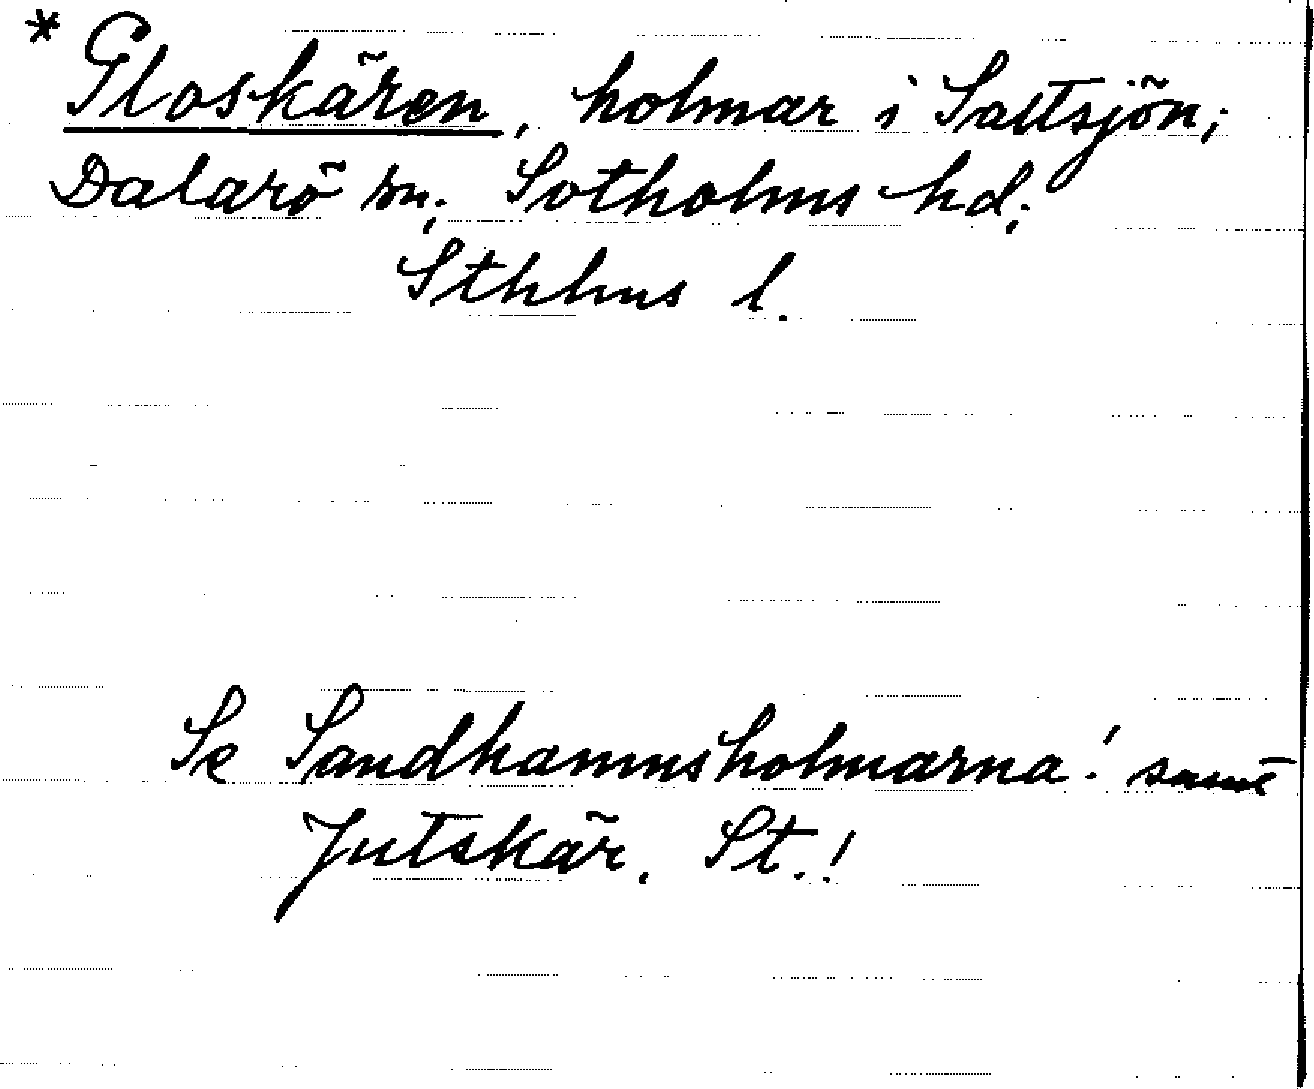 * Gloskären, holmar i Saltsjön;
Dalarö sn; Sotholms hd;
Sthlms l.
Se Sandhamnsholmarna! samt
Jutskär, St.!